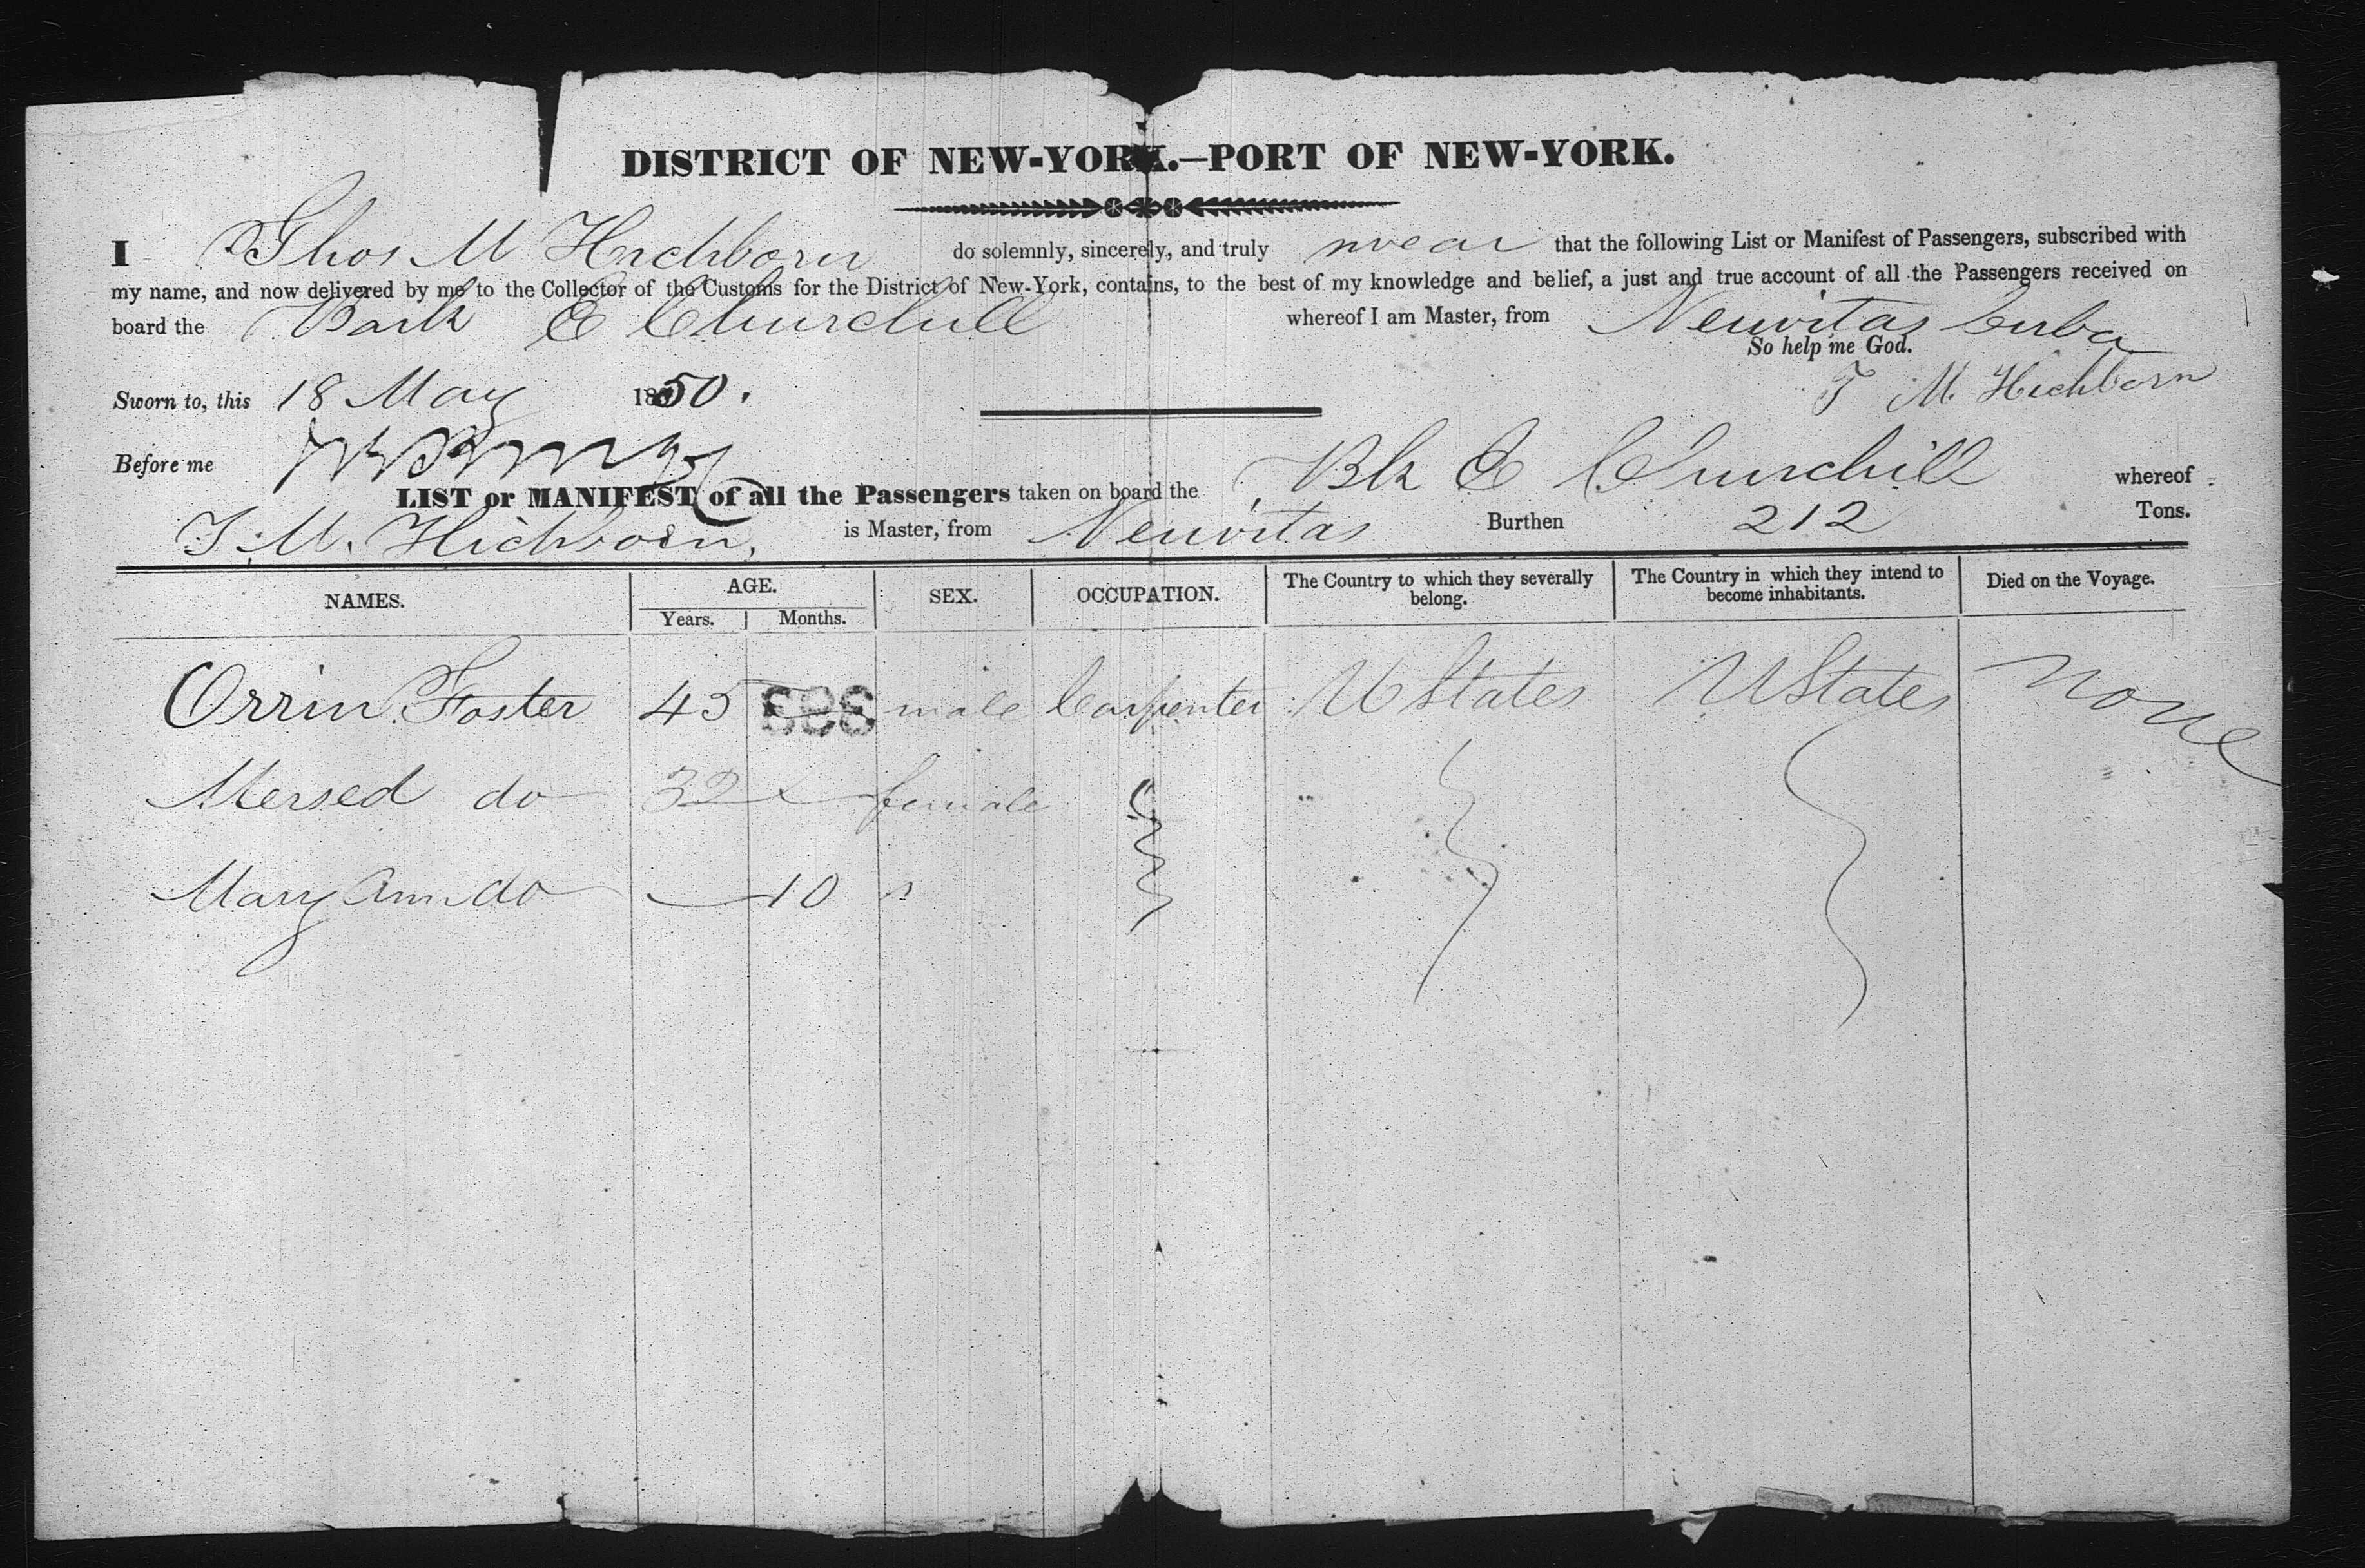 DISTRICT OF NEW-YORK.—PORT OF NEW-YORK.
I Thos M Hichborn do solemnly, sincerely, and truly swear that the following List or Manifest of Passengers, subscribed with
my name, and now delivered by me to the Collector of the Customs for the District of New-York, contains, to the best of my knowledge and belief, a just and true account of all the Passengers received on
board the Bark E Churchill whereof I am Master, from Neuvitas Cuba
So help me God.
T M Hichborn
Sworn to, this 18 May 1850.
Before me
LIST or MANIFEST of all the Passengers taken on board the Bk E Churchill whereof
T. M. Hichborn, is Master, from Neuvitas Burthen 212 Tons.
NAMES. AGE. Years. Months. SEX. OCCUPATION. The Country to which they severally belong. The Country in which they intend to become inhabitants. Died on the Voyage.
Orrin Foster 45 male Carpenter U States U States None
Mersed do 32 female
Mary Ann do 10 "